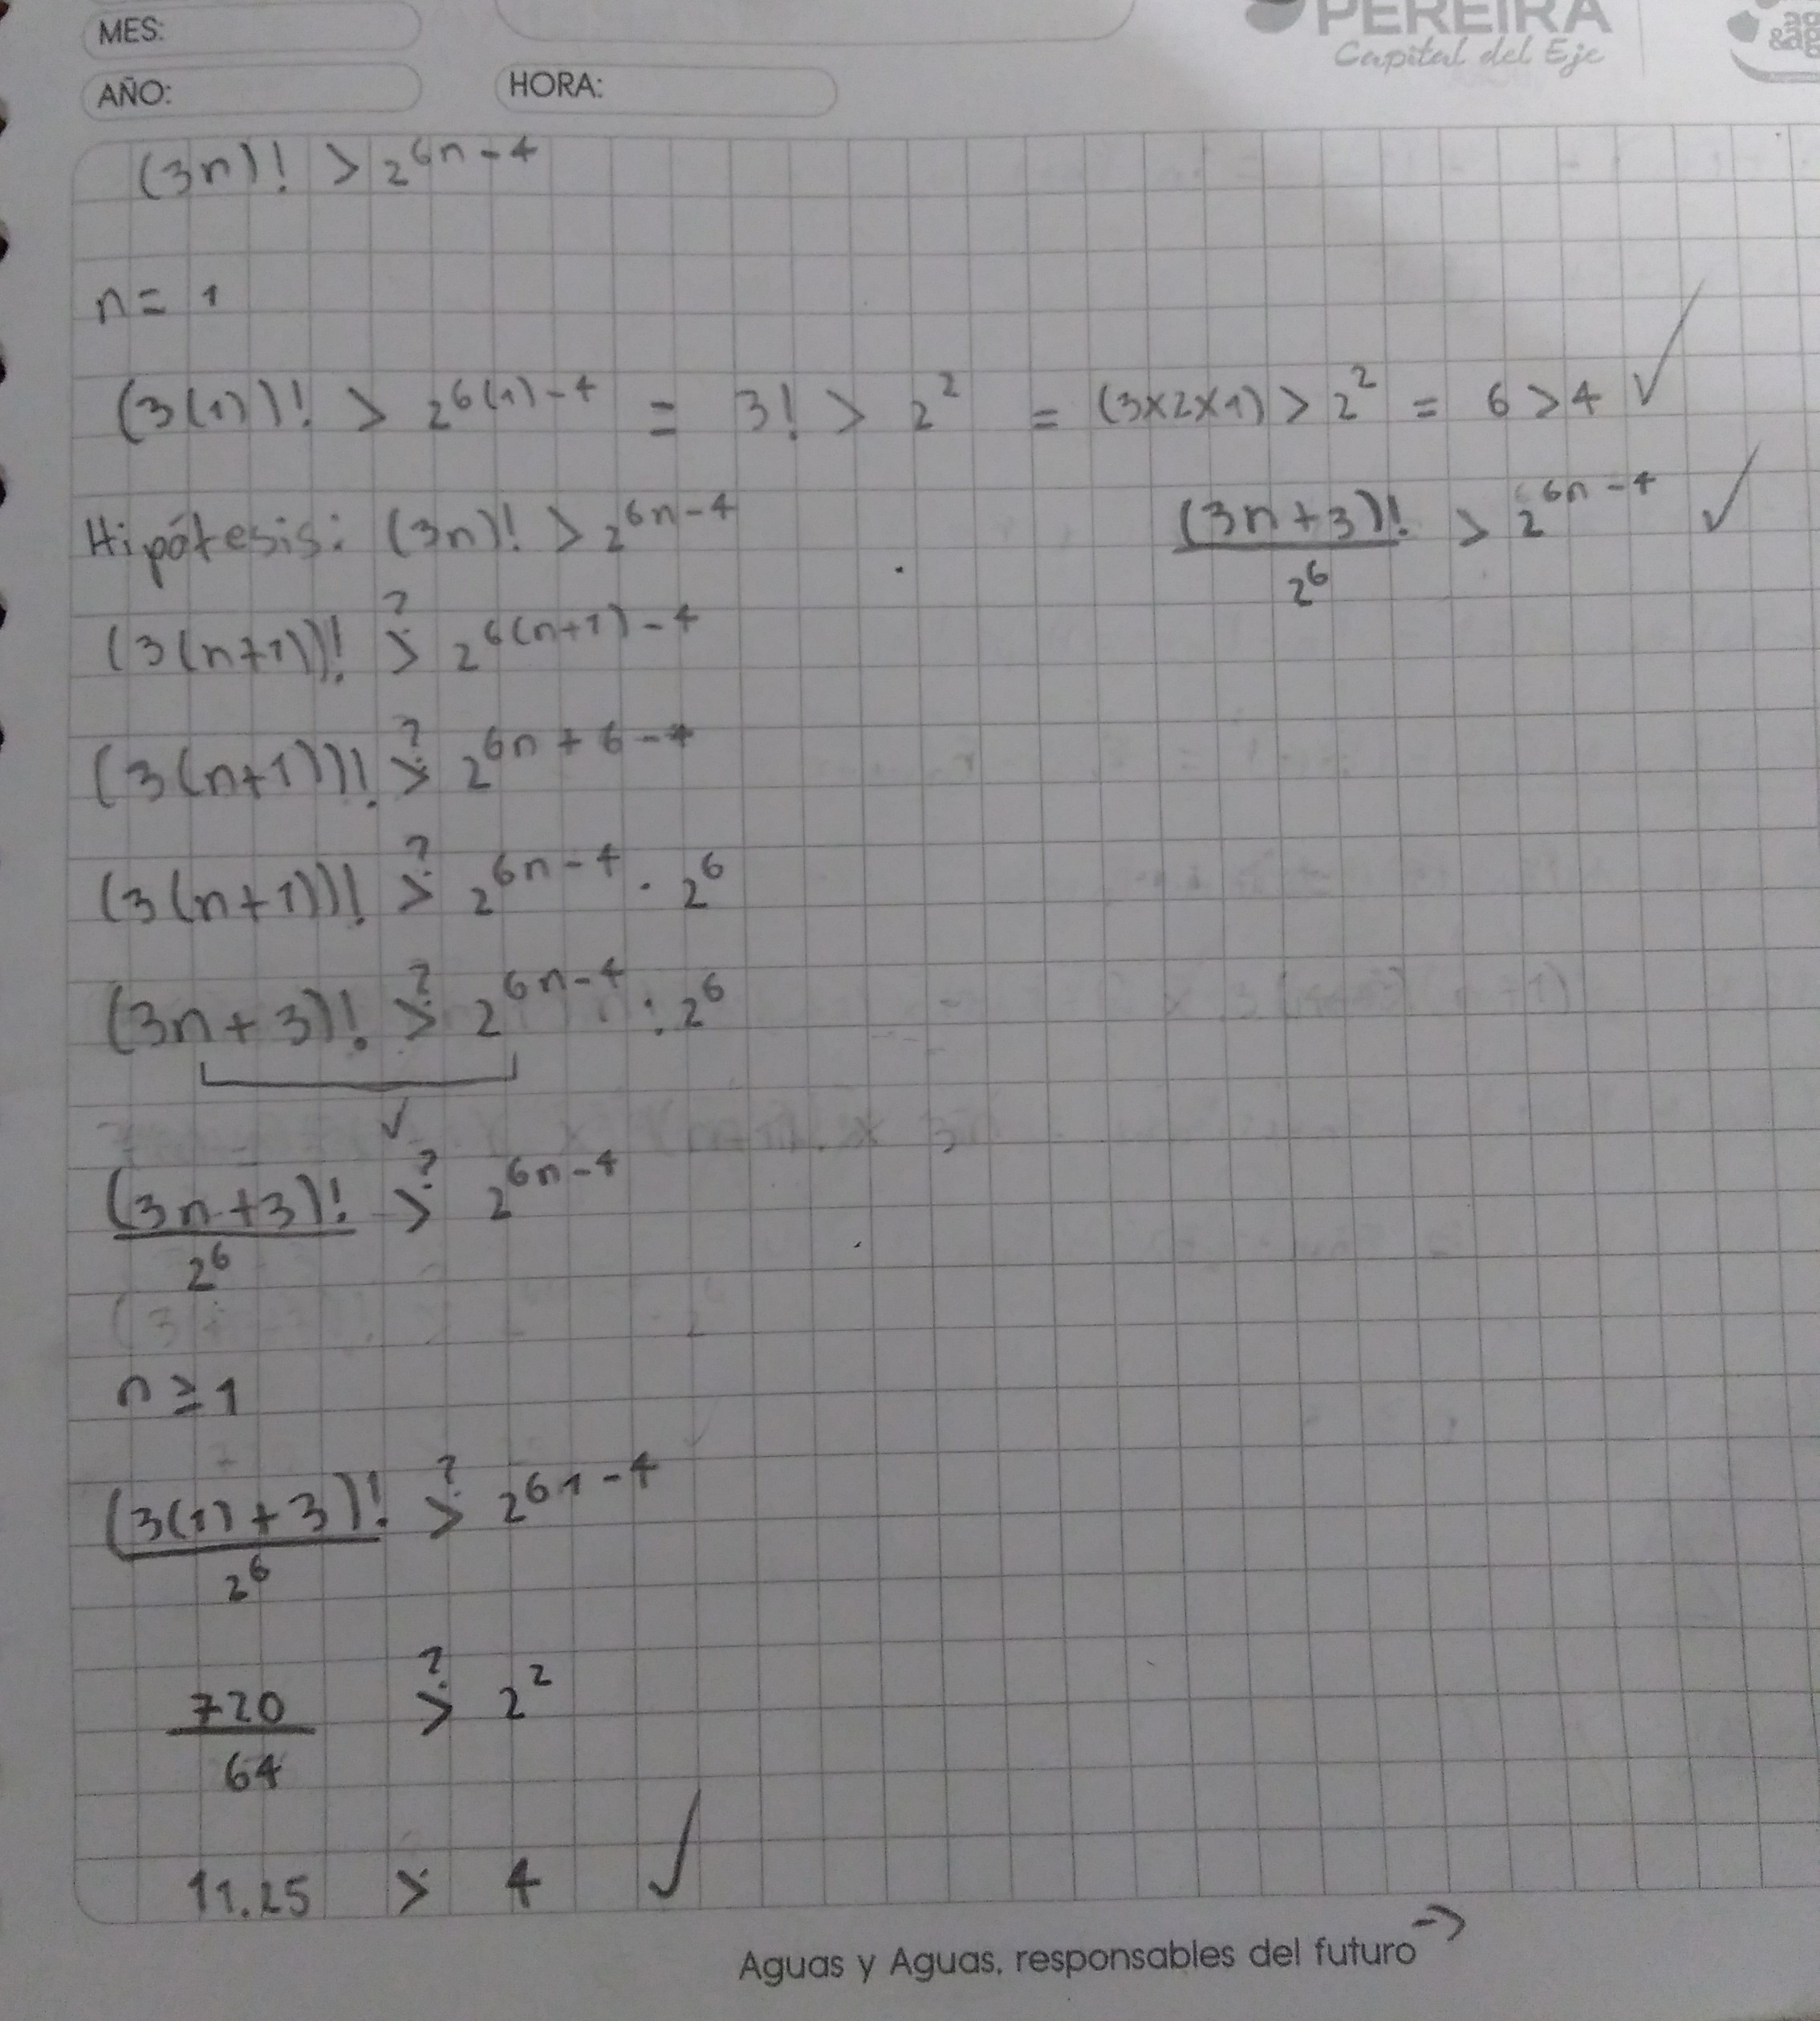 MES:
AÑO:
HORA:
PEREIRA
Capital del Eje
(3n)! > 2^{6n-4}
n = 1
(3(1))! > 2^{6(1)-4} = 3! > 2^2 = (3×2×1) > 2^2 = 6 > 4 ✓
Hipótesis: (3n)! > 2^{6n-4}
(3n+3)!/2^6 > 2^{6n-4} ✓
(3(n+1))! >? 2^{6(n+1)-4}
(3(n+1))! >? 2^{6n+6-4}
(3(n+1))! >? 2^{6n-4} · 2^6
(3n+3)! >? 2^{6n-4} : 2^6
✓
(3n+3)!/2^6 >? 2^{6n-4}
n ≥ 1
(3(1)+3)!/2^6 >? 2^{61-4}
720/64 >? 2^2
11.25 > 4 ✓
Aguas y Aguas, responsables del futuro →